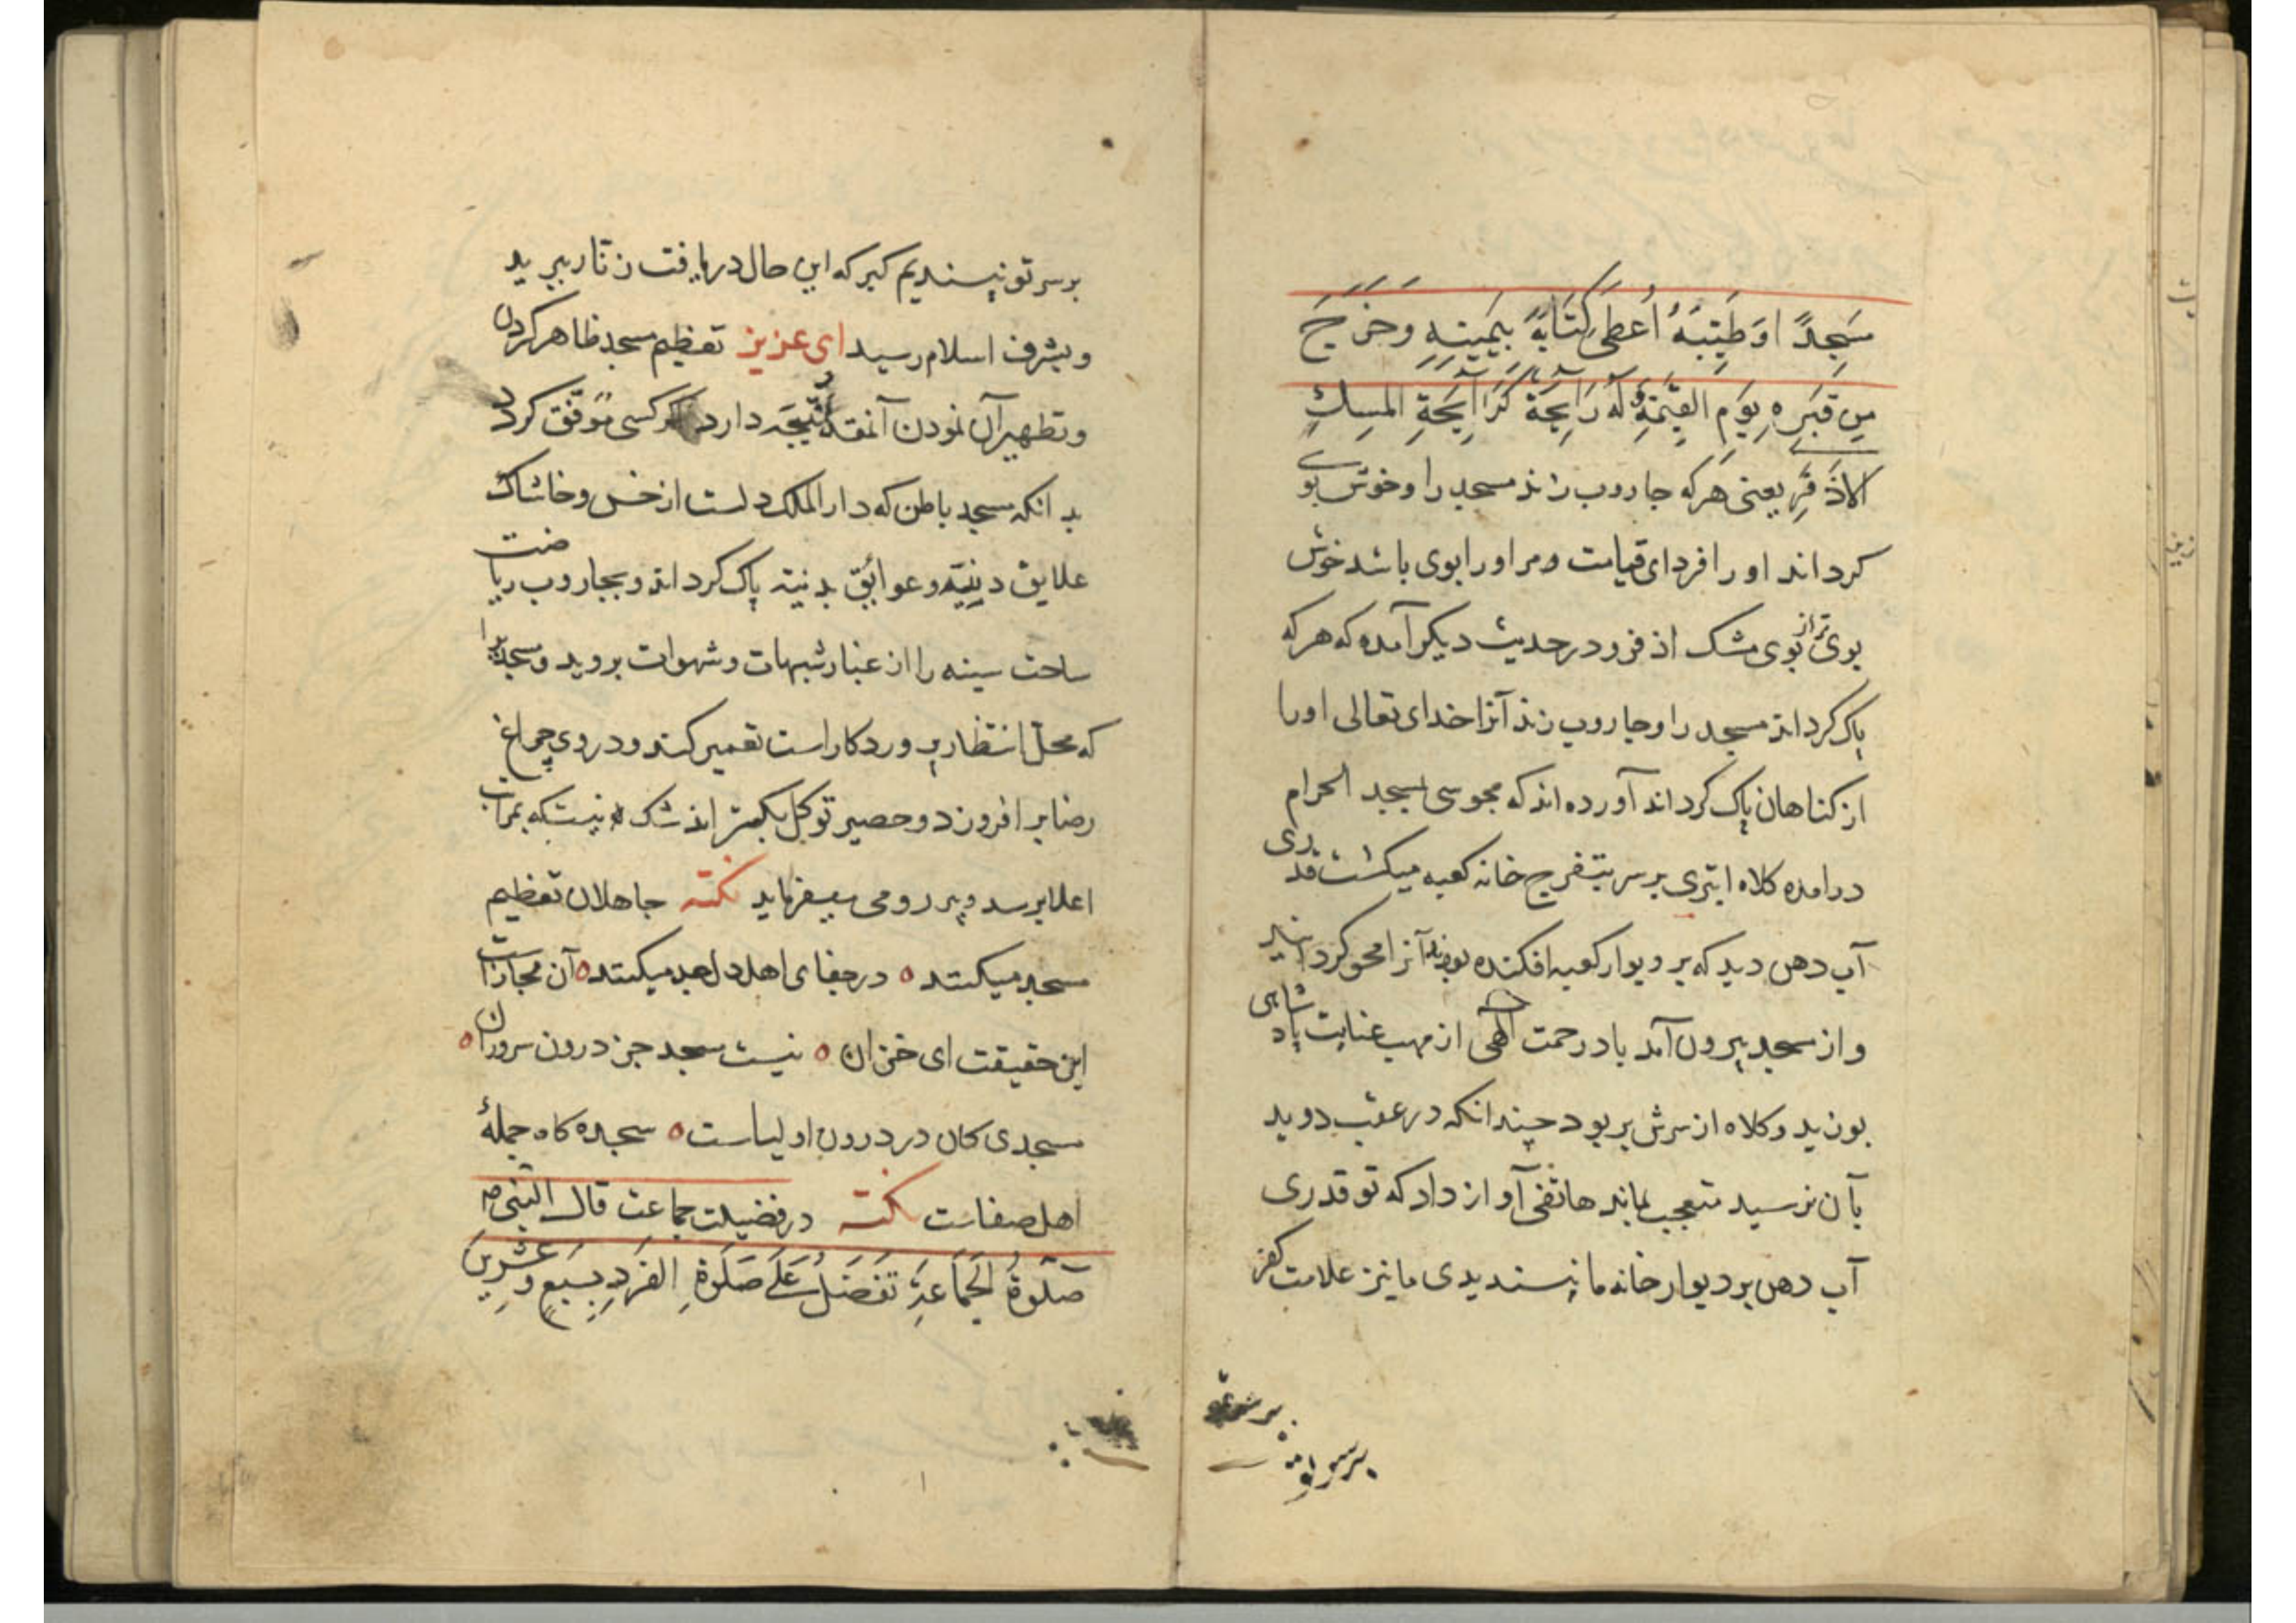 مَسجِدًا اوَطَيَّبَهُ اُعطَىَ كِتَابَهُ بِيَمِينِهِ وَخَرَجَ
مِن قَبَرِهِ يَوَمِ القِيٰمَةِ لَهُ رَآيِحَة كَرَآيِحَةِ المِسكِ
الاذفَرِ يعنى هركه جاروب زند مسجد را وخوش بوى
كرداند او را فرداى قيامت ومر اورا بوى باشد خوش
بوى تر از بوى مشك اذفر ودر حديث ديكر آمده كه هركه
پاك كرداند مسجد را وجاروب زند آنرا خداى تعالى اورا
از كناهان پاك كرداند آورده اندكه مجوسى بمسجد الحرام
درامده كلاه ابترى بر سر بتفرج خانه كعبه ميكشت قدرى
آب دهن ديد كه بر ديوار كعبه افكنده بودند آنرا محو كردانيد
واز مسجد بيرون آمد باد رحمت الهى از مهب عنايت پادشاهى
بوزيد وكلاه از سرش بربود چندانكه در عقب دويد
بآن نرسيد متعجب بماند هاتفى آواز داد كه تو قدرى
آب دهن بر ديوار خانه ما نپسنديدى ما نيز علامت كفر
بر سر تو
بر سر تو نپسنديم كبر كه اين حال دريافت زنار ببريد
وبشرف اسلام رسيد اى عزيز تعظيم مسجد ظاهر كردن
وتطهير آن نمودن آنمقدار نتيجه دارد اكر كسى موفق كردد
بدانكه مسجد باطن كه دار الملك دلست از خس وخاشاك
علايق دنييه وعوائق بدنيه پاك كرداند وبجاروب رياضت
ساحت سينه را از غبار شبهات وشهوات برويد ومسجد را
كه محل انتظار پروردكار است تعمير كند ودر وى چراغ
رضا بر افروزد وحصير توكل بكستراند شك نيست كه بمراتب
اعلا برسد وپير رومى ميفرمايد نكته جاهلان تعظيم
مسجد ميكنند ه در جفاى اهل دل جد ميكنند ه آن مجازاست
اين حقيقت اى خزان ه نيست مسجد جز درون سروران ه
مسجدى كان در درون اولياست ه سجده كاه جملهٔ
اهل صفاست نكته در فضيلت جماعت قال النبى ص
صَلَوةُ الجَمَاعَةِ تَفضُلُ عَلَى صَلَوةِ الفَردِ بِسَبعٍ وعِشرِينَ